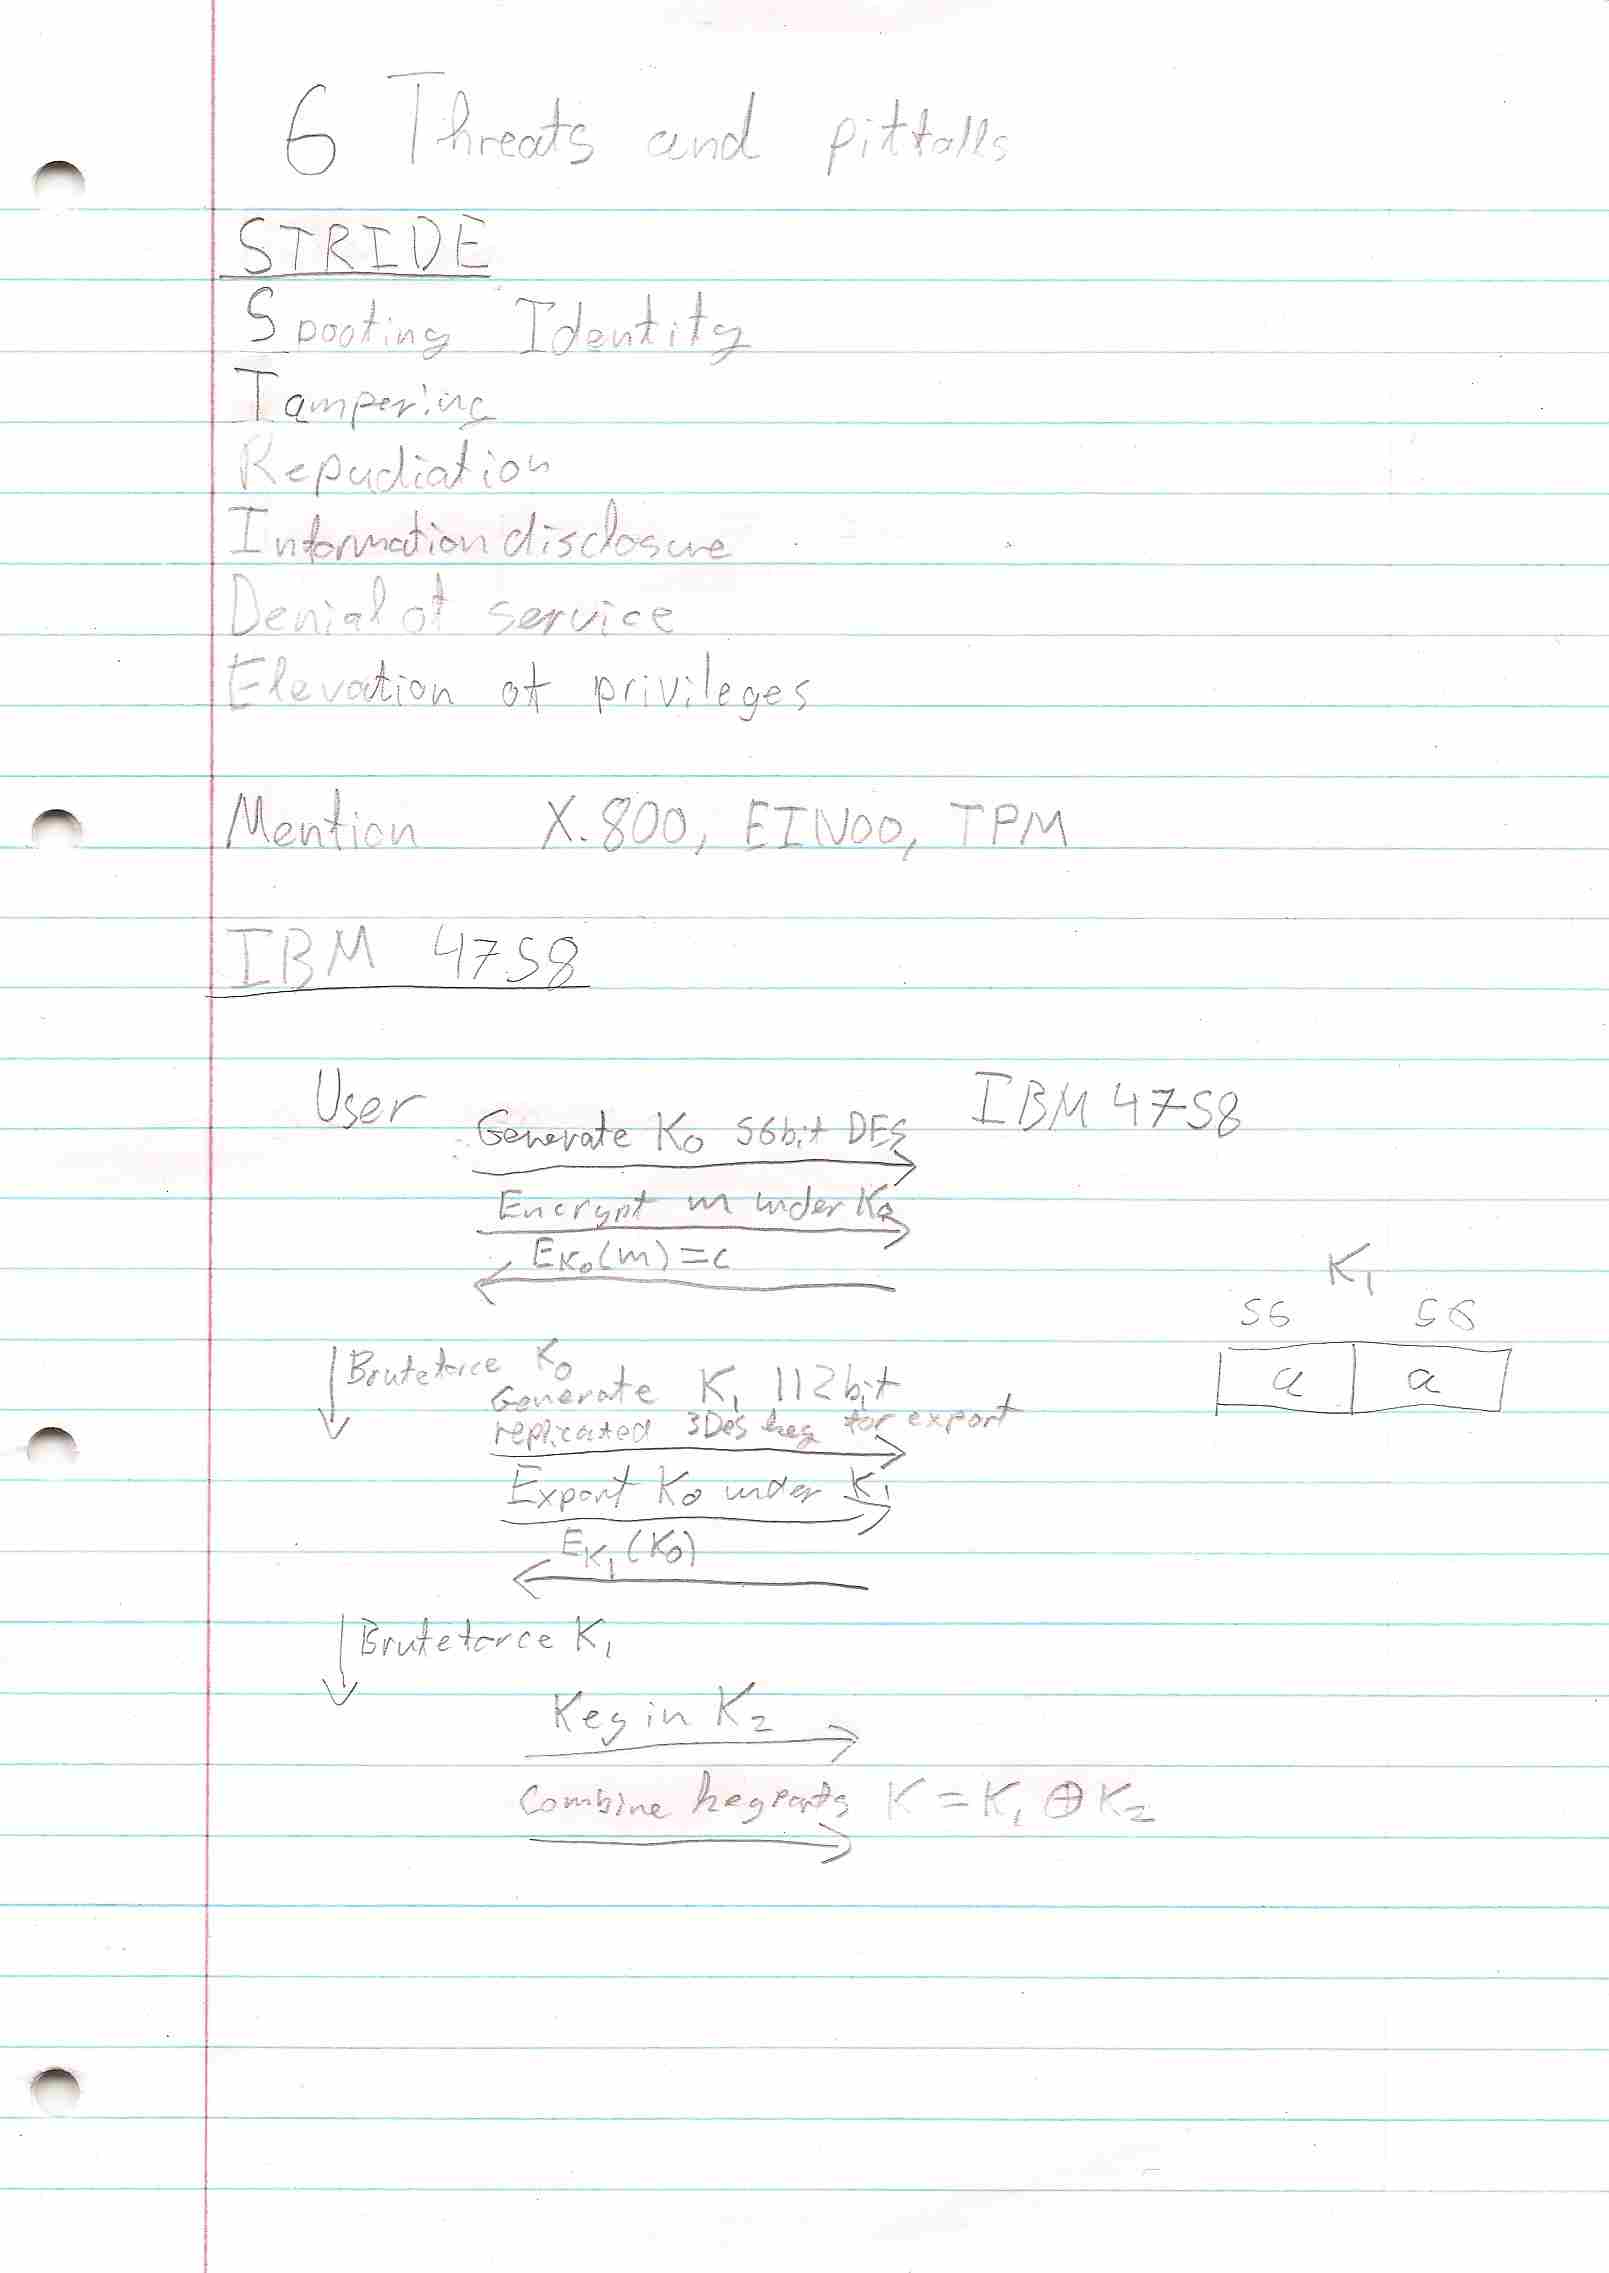 6 Threats and pitfalls
STRIDE
Spoofing Identity
Tampering
Repudiation
Information disclosure
Denial of service
Elevation of privileges
Mention X.800, EINOO, TPM
IBM 4758
User IBM 4758
Generate K0 56bit DES
Encrypt m under K0
EK0(m)=c
K1
56 56
a a
Bruteforce K0
Generate K1 112bit
replicated 3Des key for export
Export K0 under K1
EK1(K0)
Bruteforce K1
Key in K2
Combine keyparts K=K1⊕K2